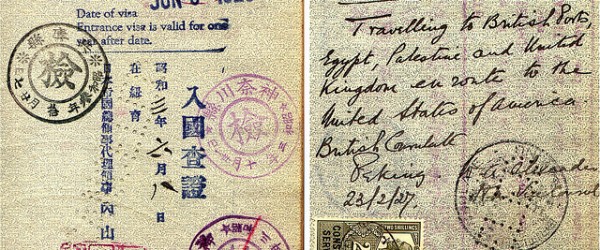 JUN 8
Date of visa
Entrance visa is valid for one
year after date.
檢
神奈川縣
檢
入國査證
昭和三年六月八日
在紐育
日本帝國總領事代理領事 内山
Travelling to British Ports,
Egypt, Palestine and United
Kingdom en route to the
United States of America.
British Consulate
Peking
23/2/27
TWO SHILLINGS